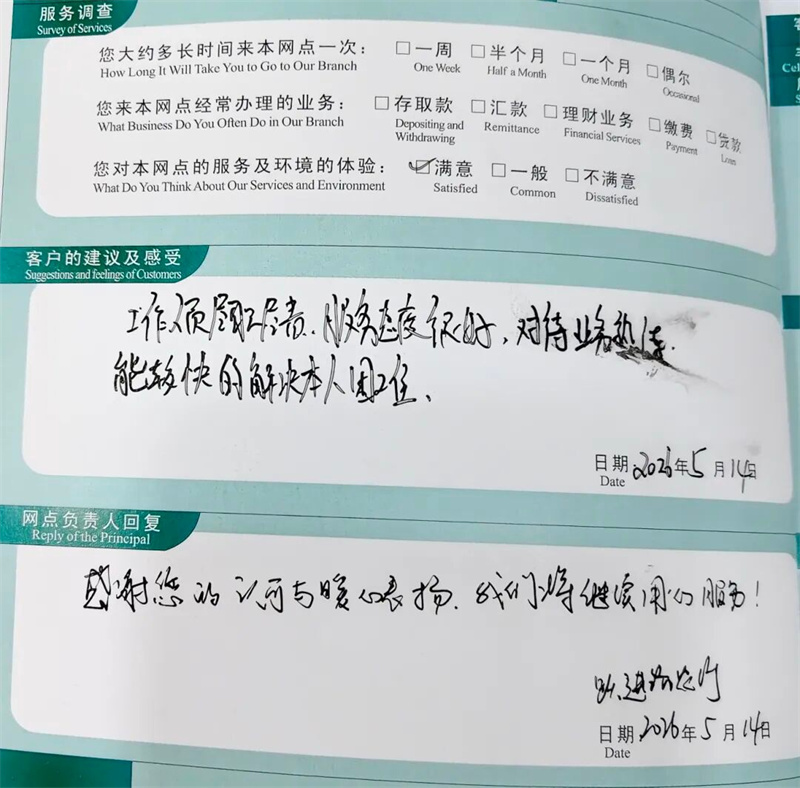 服务调查
Survey of Services
您大约多长时间来本网点一次： □一周 □半个月 □一个月 □偶尔
How Long It Will Take You to Go to Our Branch One Week Half a Month One Month Occasional
您来本网点经常办理的业务： □存取款 □汇款 □理财业务 □缴费 □贷款
What Business Do You Often Do in Our Branch Depositing and Withdrawing Remittance Financial Services Payment Loan
您对本网点的服务及环境的体验： ☑满意 □一般 □不满意
What Do You Think About Our Services and Environment Satisfied Common Dissatisfied
客户的建议及感受
Suggestions and feelings of Customers
工作人员 服务态度很好，对待业务热情
能够快的解决本人困
日期 2026年5月14日
Date
网点负责人回复
Reply of the Principal
感谢您的认可与暖心表扬，我们将继续用心服务！
跃进路支行
日期 2026年5月14日
Date